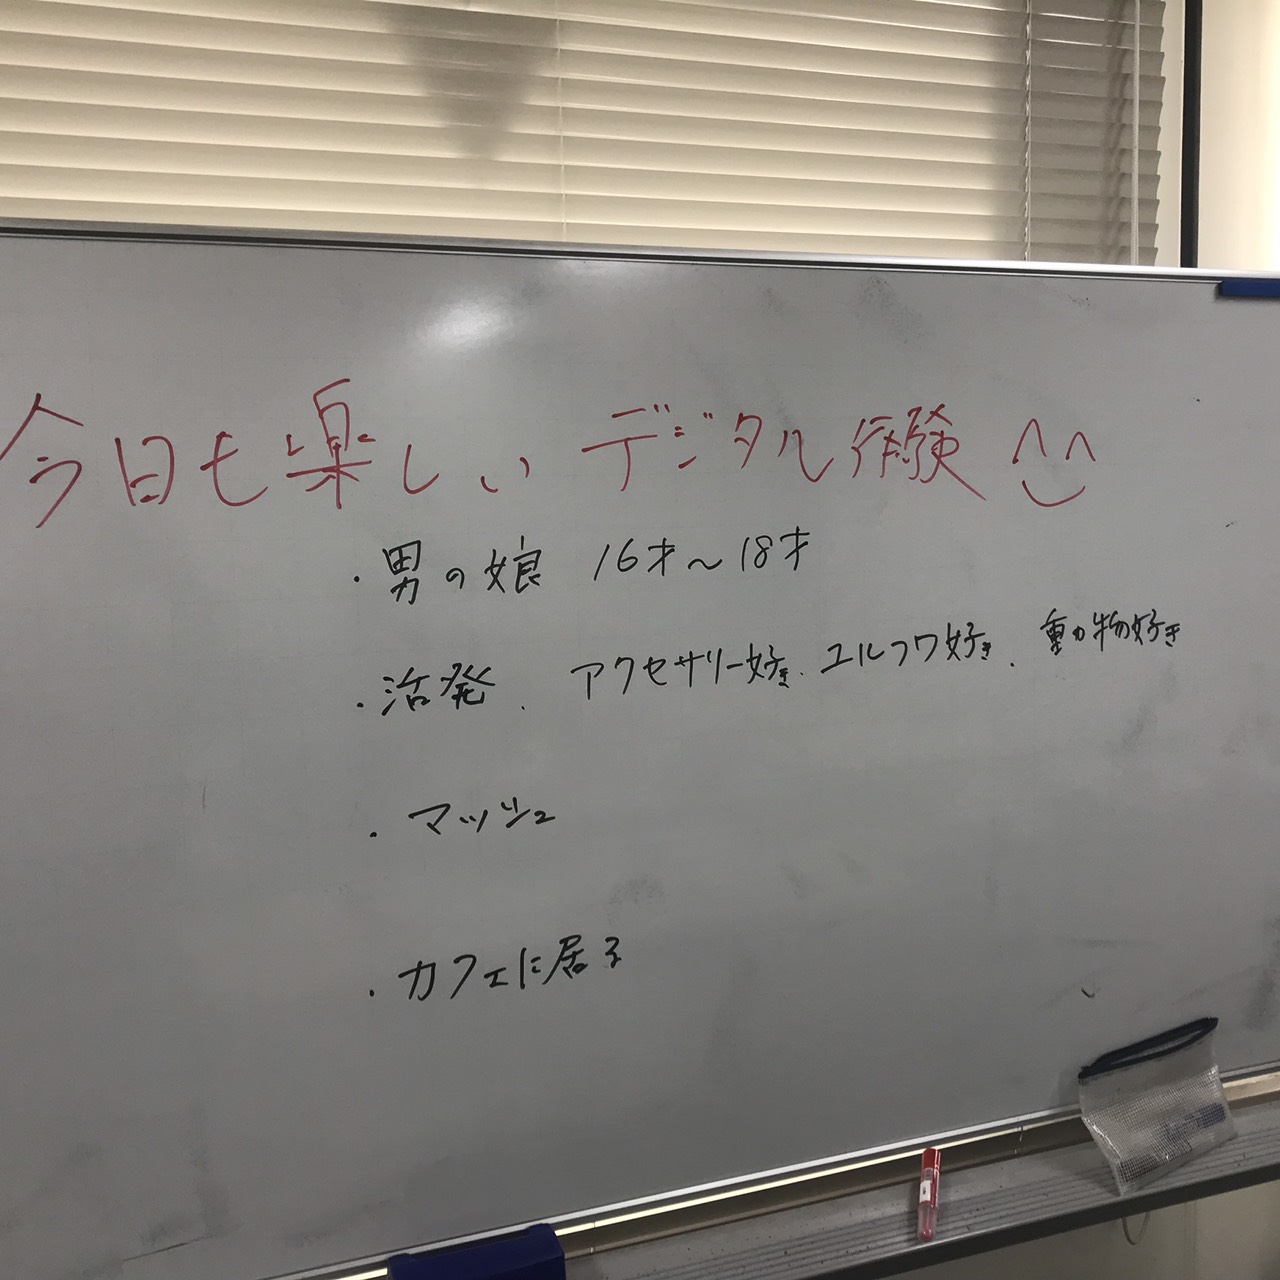 今日も楽しいデジタル体験
・男の娘 16才～18才
・活発、アクセサリー好き、ユルフワ好き、動物好き
・マッシュ
・カフェに居る